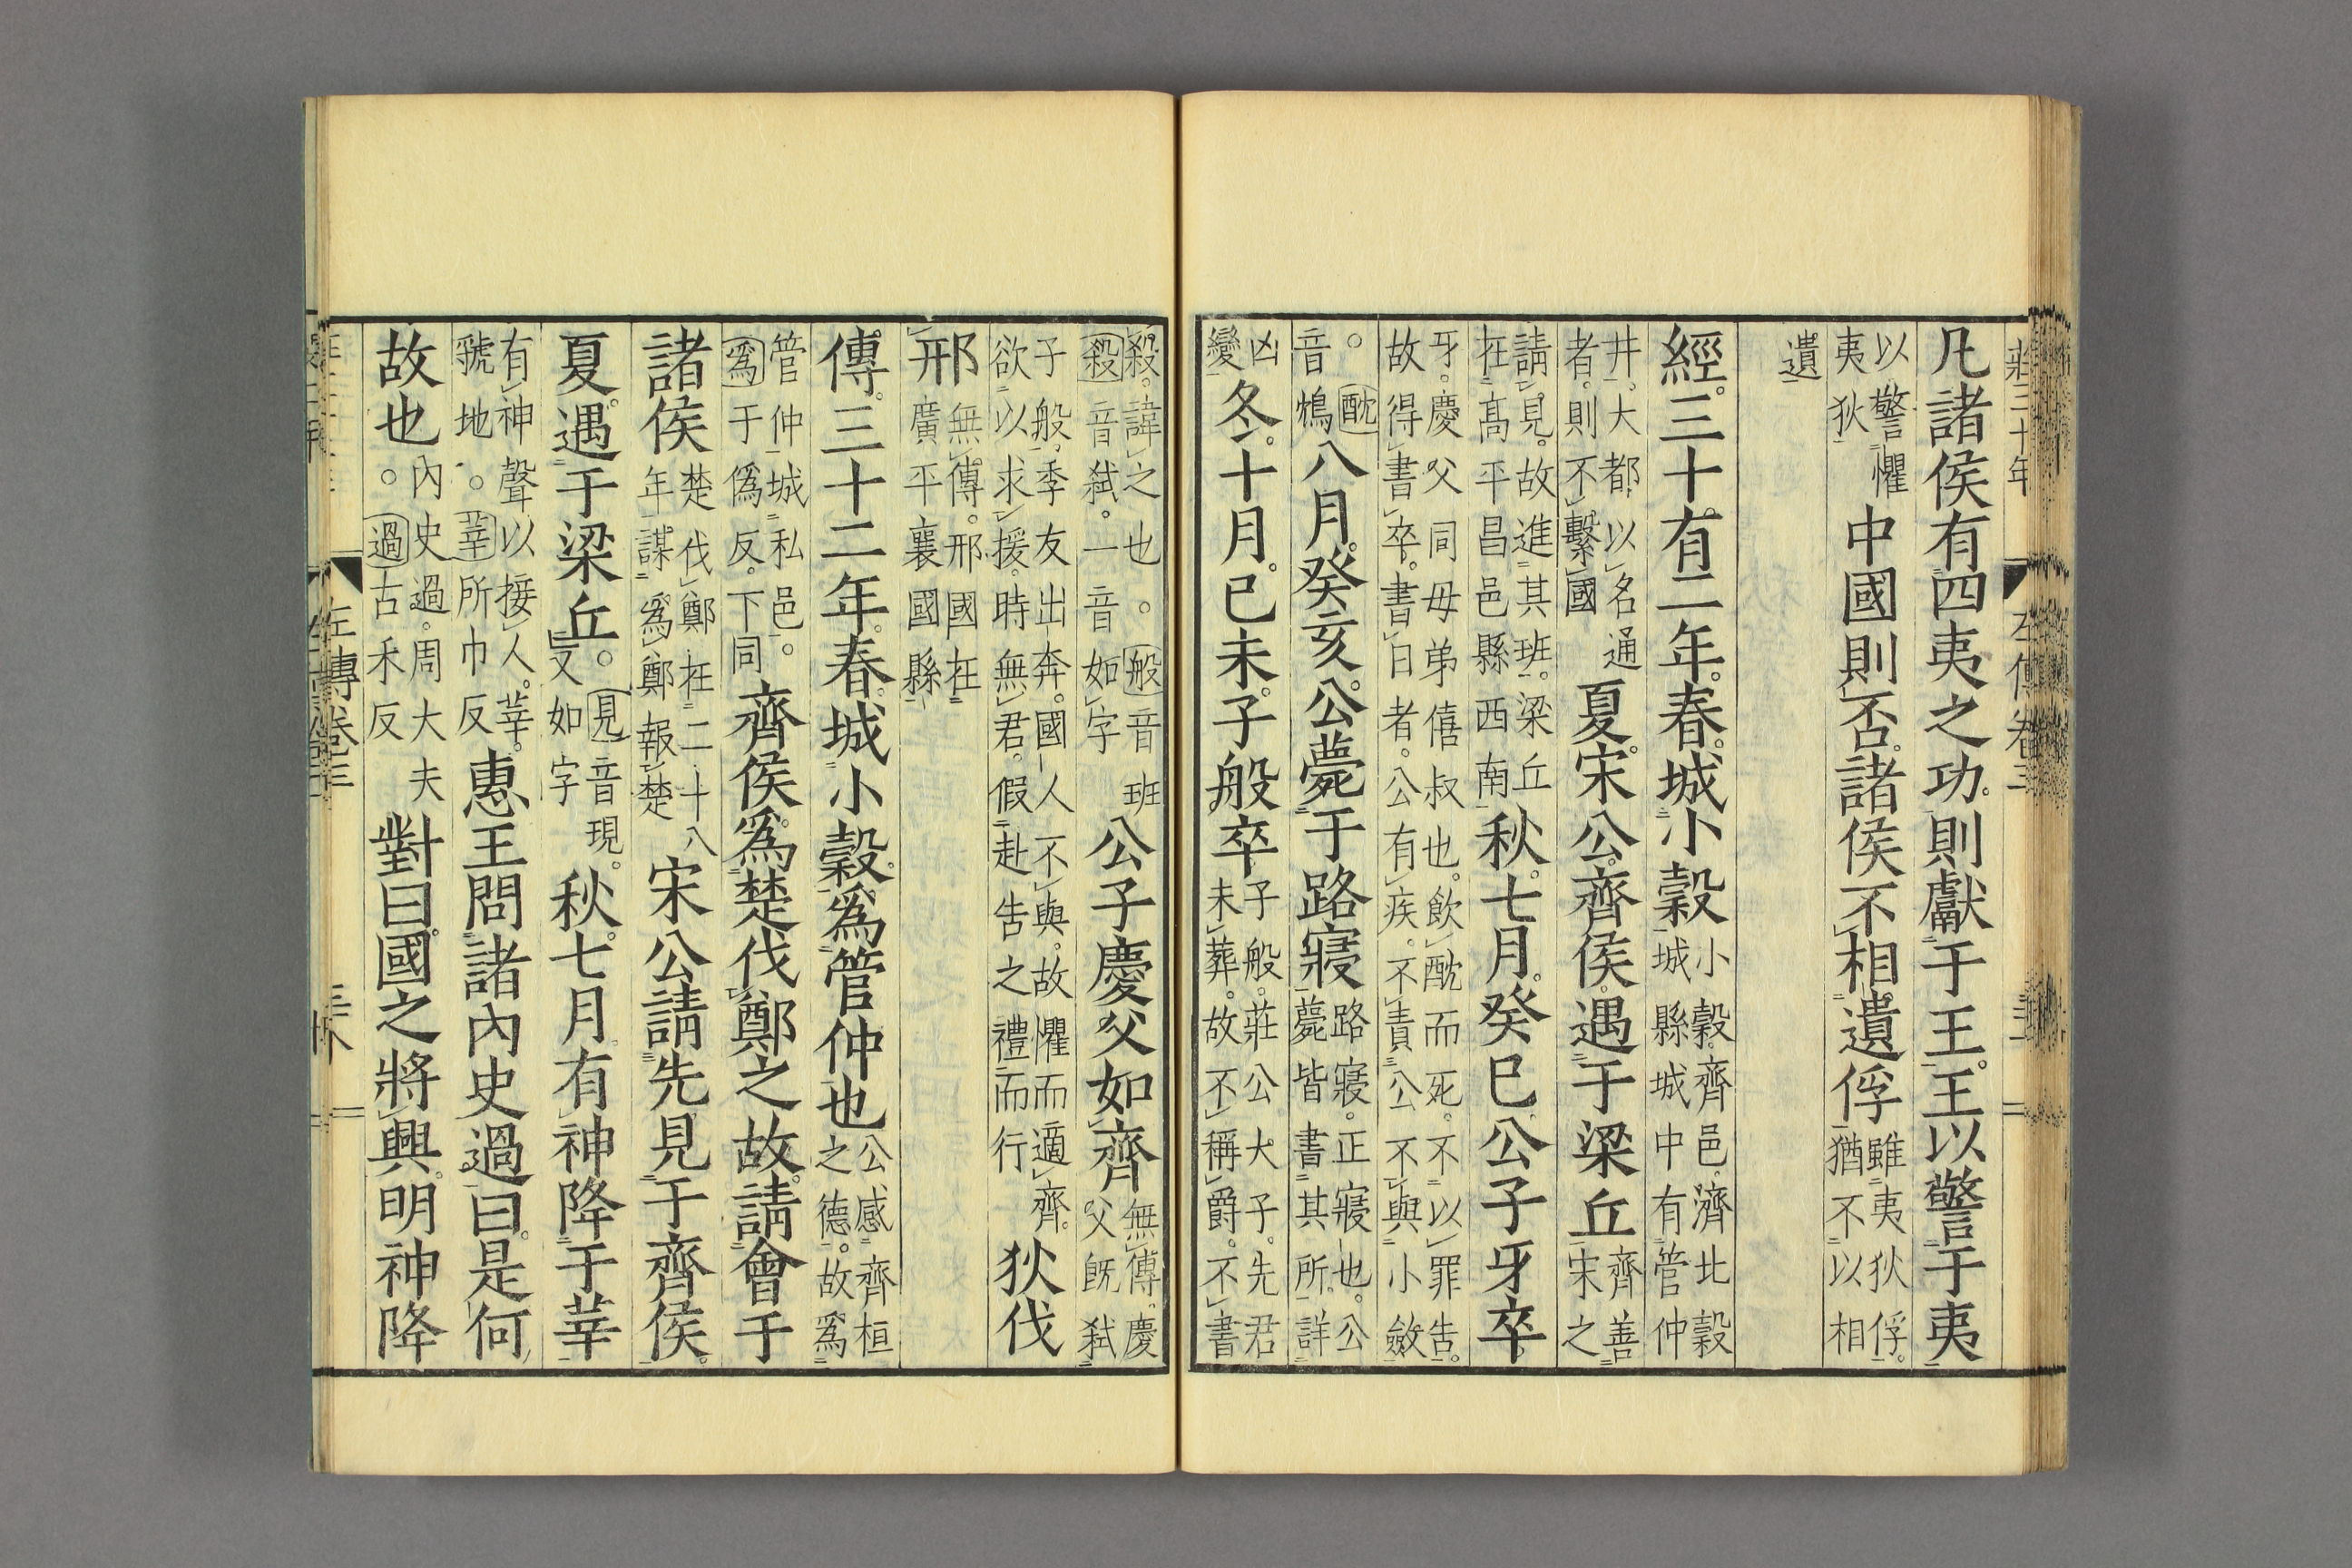 莊三十年　左傳卷三
凡諸侯有四夷之功。則獻于王。王以警于夷
以警懼夷狄中國則否。諸侯不相遺俘雖夷狄俘。猶不以相
遺
經。三十有二年。春。城小穀小穀。齊邑。濟北穀城縣城中有管仲
井。大都以名通者。則不繫國夏。宋公。齊侯。遇于梁丘齊善宋之
請見。故進其班。梁丘在高平昌邑縣西南秋。七月。癸巳公子牙卒。
牙。慶父同母弟僖叔也。飲酖而死。不以罪告。故得書卒。書日者。公有疾。不責公不與小斂
。酖音鴆八月。癸亥。公薨于路寢路寢。正寢也。公薨皆書其所。詳
凶變冬。十月。己未。子般卒子般。莊公大子。先君未葬。故不稱爵。不書
殺。諱之也。般音班殺音弒。一音如字公子慶父如齊無傳。慶父旣弒
子般。季友出奔。國人不與。故懼而適齊。欲以求援。時無君。假赴告之禮而行狄伐
邢無傳。邢國在廣平襄國縣
傳。三十二年。春。城小穀。爲管仲也公感齊桓之德。故爲
管仲城私邑。爲于僞反。下同齊侯。爲楚伐鄭之故。請會于
諸侯楚伐鄭在二十八年。謀爲鄭報楚宋公請先見于齊侯。
夏。遇于梁丘。見音現。又如字秋。七月。有神降于莘
有神聲以接人。莘。虢地。莘所巾反惠王問諸內史過曰。是何
故也內史過。周大夫。過古禾反對曰。國之將興。明神降
左傳卷三